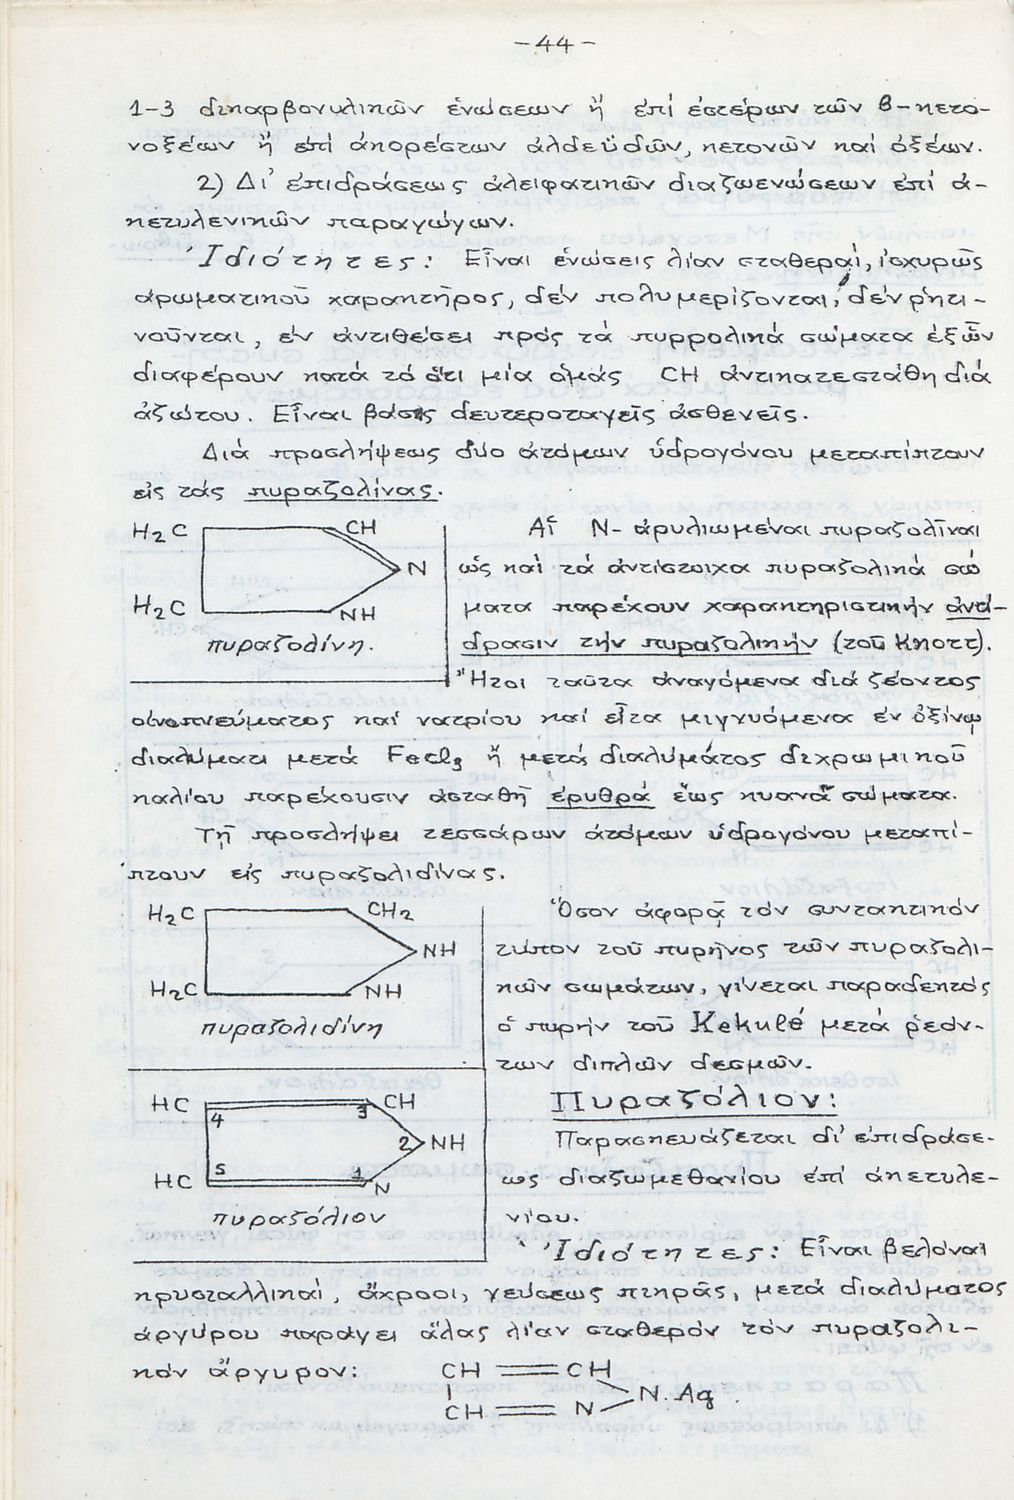 -44-
1-3 δικαρβονυλικῶν ἑνώσεων ἤ ἐπί ἐστέρων τῶν β-κετο-
νοξέων ἤ ἐπί ἀκορέστων ἀλδεϋδῶν, κετονῶν καί ὀξέων.
2) Δι' ἐπιδράσεως ἀλειφατικῶν διαζωενώσεων ἐπί ἀ-
κετυλενικῶν παραγώγων.
Ἰδιότητες: Εἶναι ἑνώσεις λίαν σταθεραί, ἰσχυρῶς
ἀρωματικοῦ χαρακτῆρος, δέν πολυμερίζονται, δέν ρητι-
νοῦνται, ἐν ἀντιθέσει πρός τά πυρρολικά σώματα ἐξ ὧν
διαφέρουν κατά τό ὅτι μία ὁμάς CH ἀντικατεστάθη διά
ἀζώτου. Εἶναι βάσεις δευτεροταγεῖς ἀσθενεῖς.
Διά προσλήψεως δύο ἀτόμων ὑδρογόνου μεταπίπτουν
εἰς τάς πυραζολίνας.
H2C CH
N
H2C NH
πυραζολίνη.
Αἵ N- ἀρυλιωμέναι πυραζολῖναι
ὡς καί τά ἀντίστοιχα πυραζολικά σώ
ματα παρέχουν χαρακτηριστικήν ἀντί-
δρασιν τήν πυραζολικήν (τοῦ Κnοττ).
Ἤτοι ταῦτα ἀναγόμενα διά ζέοντος
οἰνοπνεύματος καί νατρίου καί εἶτα μιγνυόμενα ἐν ὀξίνῳ
διαλύματι μετά FeCl3 ἤ μετά διαλύματος διχρωμικοῦ
καλίου παρέχουσιν ἀσταθῆ ἐρυθρά ἕως κυανᾶ σώματα.
Τῇ προσλήψει τεσσάρων ἀτόμων ὑδρογόνου μεταπί-
πτουν εἰς πυραζολιδίνας.
H2C CH2
NH
H2C NH
πυραζολιδίνη
Ὅσον ἀφορᾷ τόν συντακτικόν
τύπον τοῦ πυρῆνος τῶν πυραζολι-
κῶν σωμάτων, γίνεται παραδεκτός
ὁ πυρήν τοῦ Kekulé μετά ῥεόν-
των διπλῶν δεσμῶν.
HC CH
4 3
2 NH
5 1
HC N
πυραζόλιον
Πυραζόλιον:
Παρασκευάζεται δι' ἐπιδράσε-
ως διαζωμεθανίου ἐπί ἀκετυλε-
νίου.
Ἰδιότητες: Εἶναι βελόναι
κρυσταλλικαί, ἄχροοι, γεύσεως πικρᾶς, μετά διαλύματος
ἀργύρου παράγει ἅλας λίαν σταθερόν τόν πυραζολι-
κόν ἄργυρον:
CH CH
N.Ag
CH N